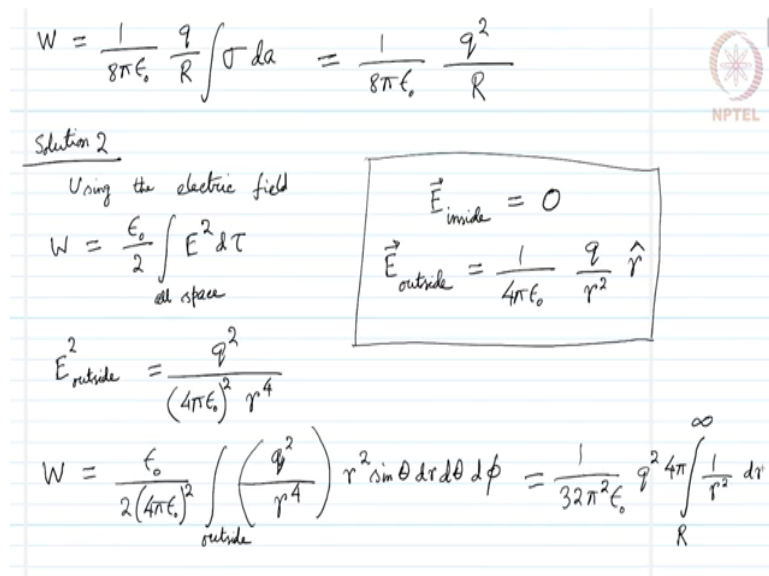 W = 1/(8πϵ₀) q/R ∫ σ da = 1/(8πϵ₀) q²/R
NPTEL
Solution 2
Using the electric field
W = ϵ₀/2 ∫ E² dτ
all space
E⃗ inside = 0
E⃗ outside = 1/(4πϵ₀) q/r² r̂
E² outside = q²/((4πϵ₀)² r⁴)
W = ϵ₀/(2(4πϵ₀)²) ∫ outside (q²/r⁴) r² sin θ dr dθ dϕ = 1/(32π²ϵ₀) q² 4π ∫ R ∞ 1/r² dr